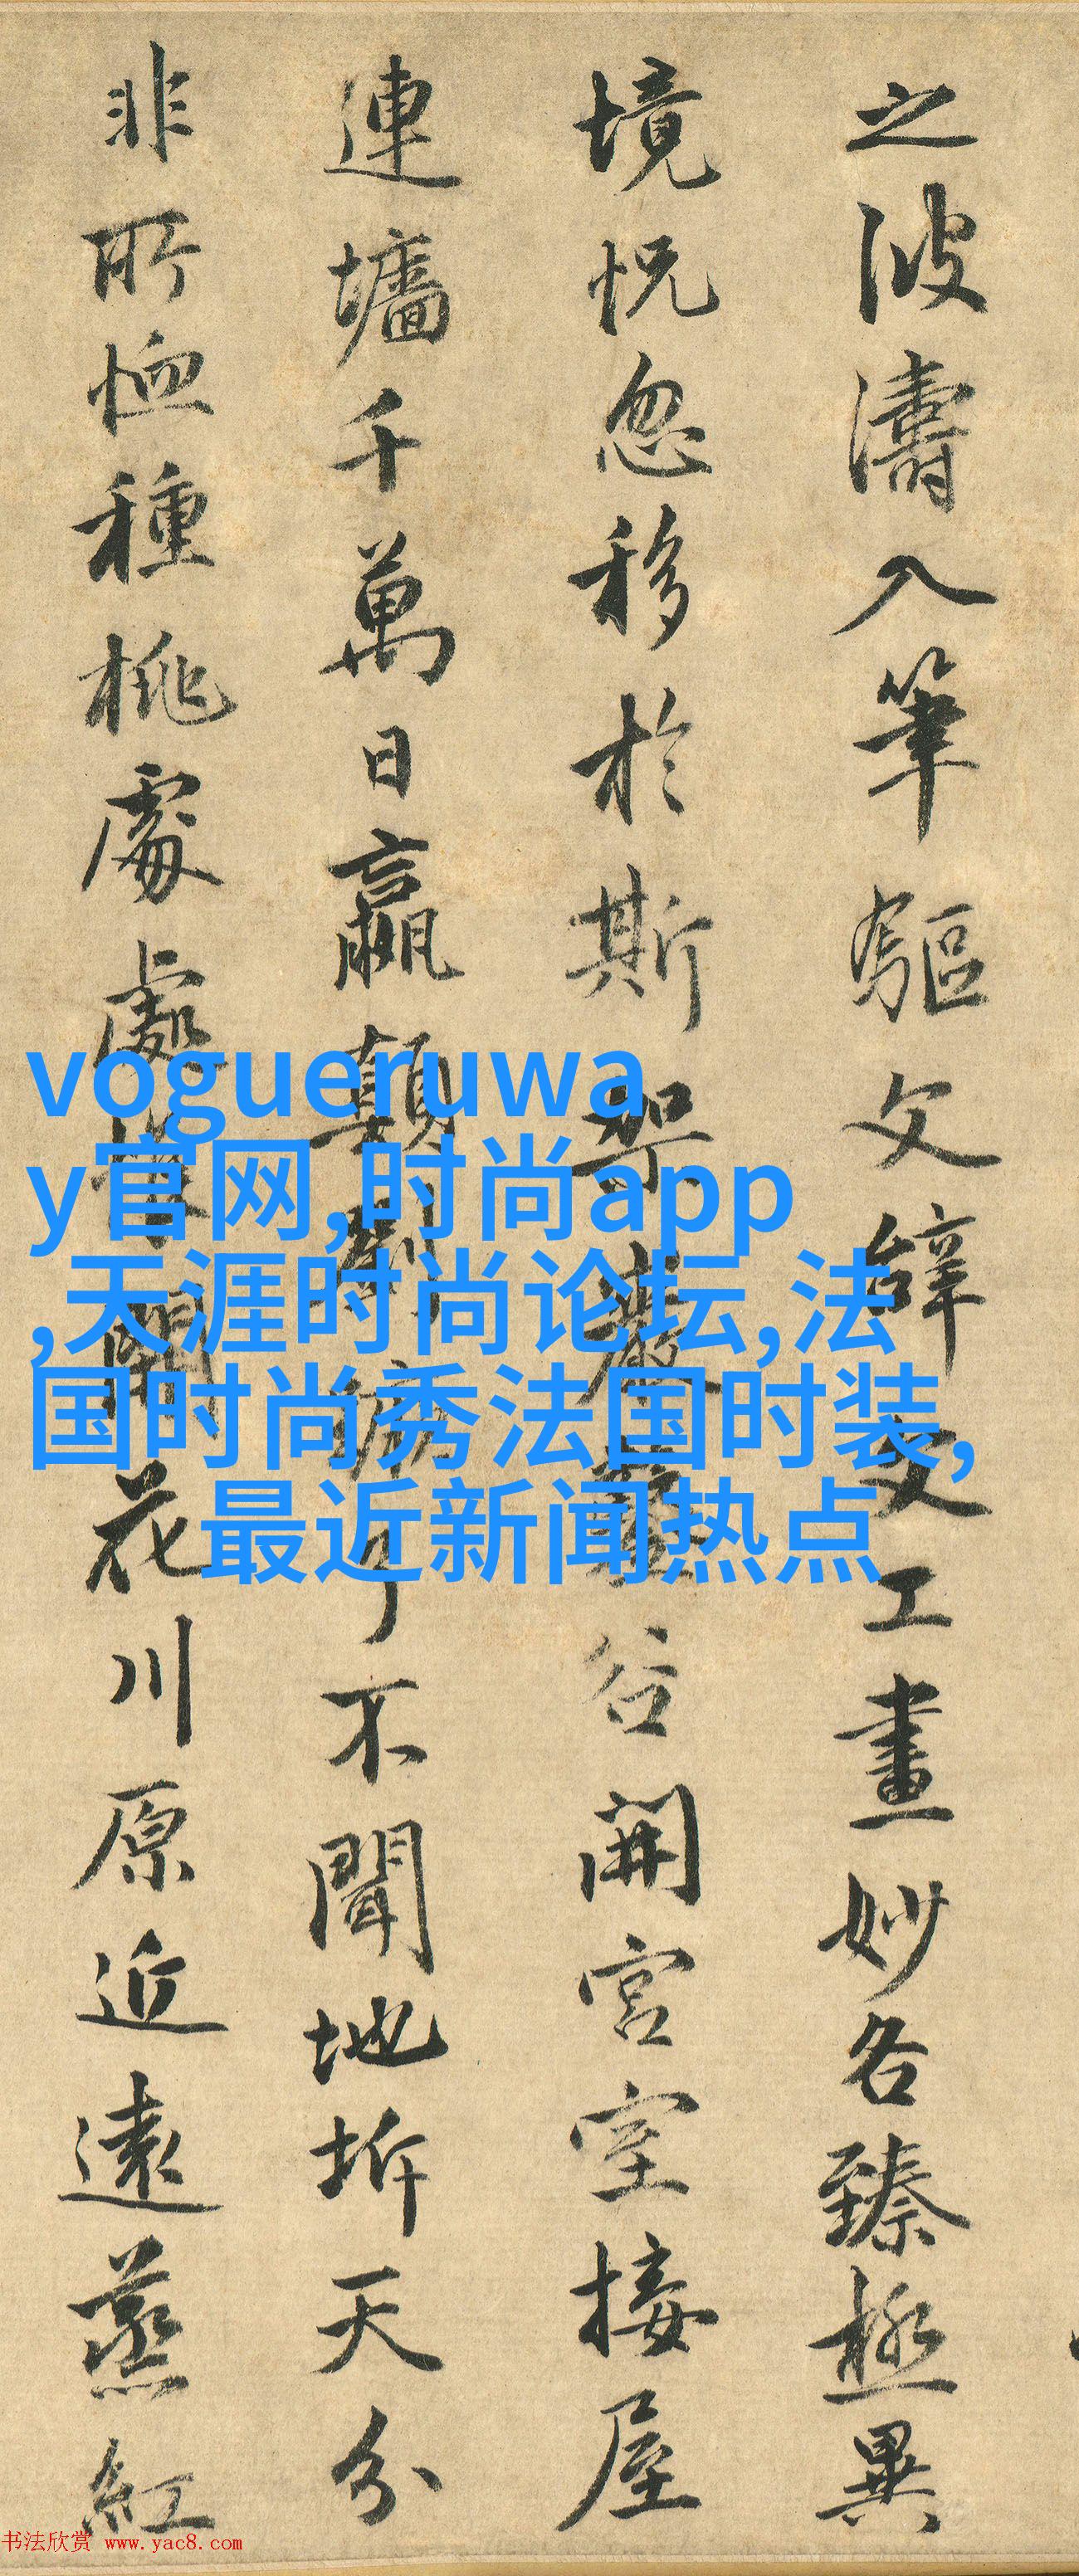 之波濤入筆驅文辭文工畫妙各臻極異
境怳忽移於斯架巖鑿谷開宮室接屋
連墻千萬日嬴顛劉蹶了不聞地坼天分
非所恤種桃處處惟開花川原近遠蒸紅
vogueruwa
y官网,时尚app
,天涯时尚论坛,法
国时尚秀法国时装,
最近新闻热点
书法欣赏 www.yac8.com